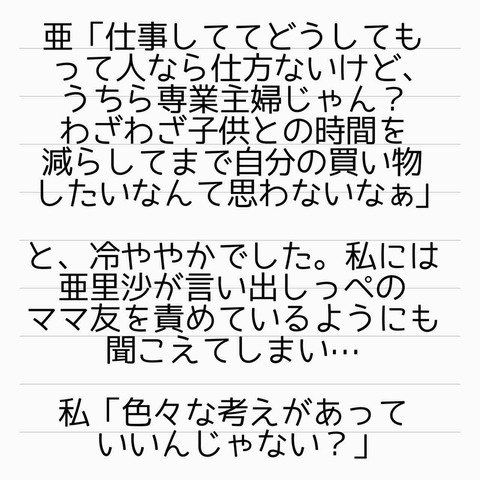 亜「仕事しててどうしても
って人なら仕方ないけど、
うちら専業主婦じゃん？
わざわざ子供との時間を
減らしてまで自分の買い物
したいなんて思わないなぁ」
と、冷ややかでした。私には
亜里沙が言い出しっぺの
ママ友を責めているようにも
聞こえてしまい…
私「色々な考えがあって
いいんじゃない？」